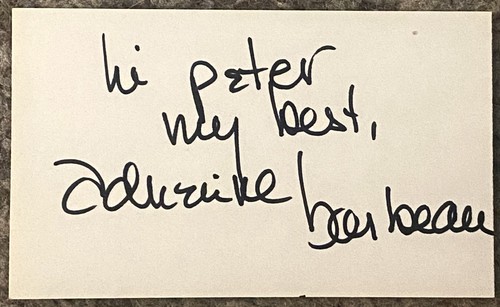 hi peter
my best,
adrienne barbeau